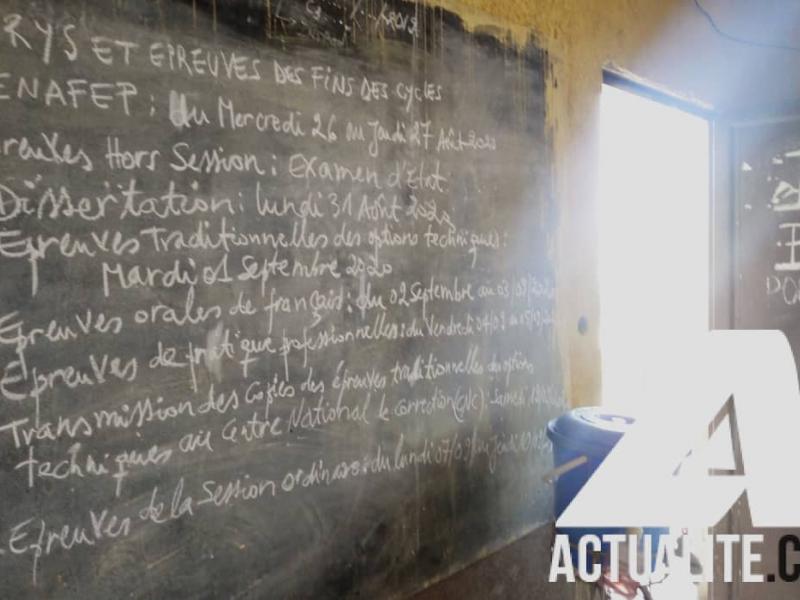 RYS ET EPREUVES DES FINS DES CYCLES
ENAFEP : du Mercredi 26 au Jeudi 27 Août 2020
reuves Hors Session : Examen d'Etat
Dissertation : lundi 31 Août 2020
Epreuves Traditionnelles des options techniques :
Mardi 01 Septembre 2020
Epreuves orales de français : du 02 Septembre au 03/09/2020
Epreuves de pratique professionnelles : du Vendredi 04/09 au 05/09
Transmission des Copies des épreuves traditionnelles des options
techniques au Centre National de Correction (CNC) : Samedi
Epreuves de la Session ordinaire : du lundi 07/09 au Jeudi
ACTUALITE.C